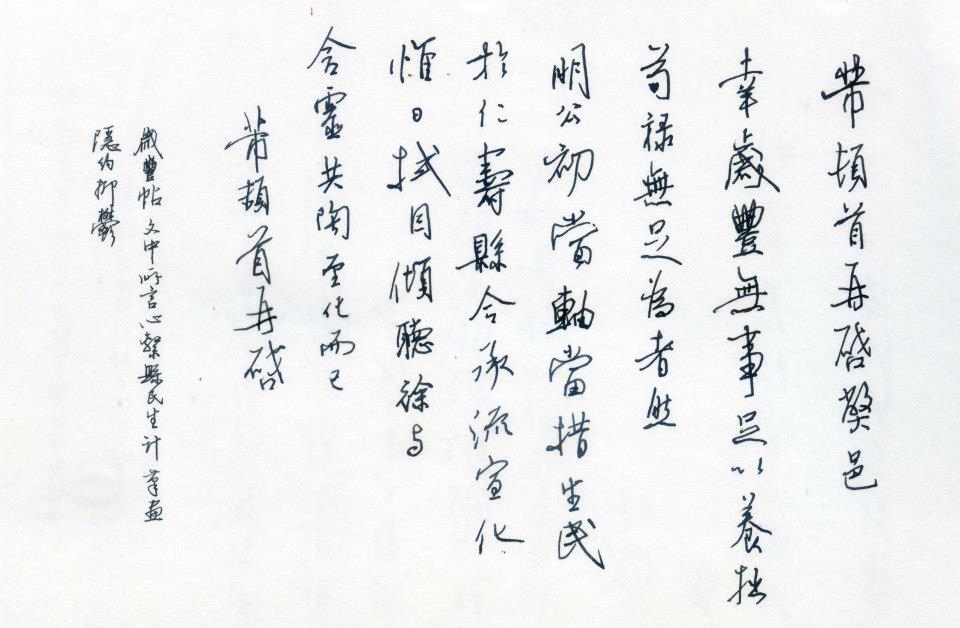 芾頓首再啓弊邑
幸歲豐無事足以養拙
苟祿無足為者然
明公初當軸當措生民
於仁壽縣令承流宣化
惟日拭目傾聽徐与
含靈共陶至化而已
芾頓首再啓
歲豐帖 文中所言心繫縣民生計 筆畫
隱約抑鬱